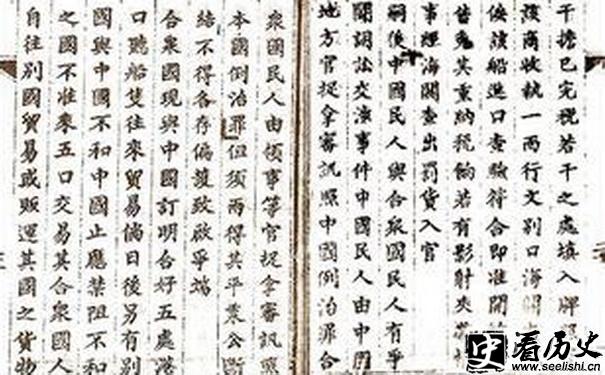 干擔已完稅若干之處填入牌
該商收執一面行文別口海關
俟該船進口查驗符合即准開
免其重納稅餉若有影射夾
事經海關查出罰貨入官
嗣後中國民人與合衆國民人有爭
鬬詞訟交涉事件中國民人由中國
地方官捉拿審訊照中國例治罪合
衆國民人由領事等官捉拿審訊照
本國例治罪但須兩得其平秉公斷
結不得各存偏護致啟爭端
合衆國現與中國訂明合好五處港
口聽船隻往來貿易倘日後另有別
國與中國不和中國止應禁阻不和
之國不准來五口交易其合衆國人
自往別國貿易或販運其國之貨物
史 看历史
www.seelishi.cn